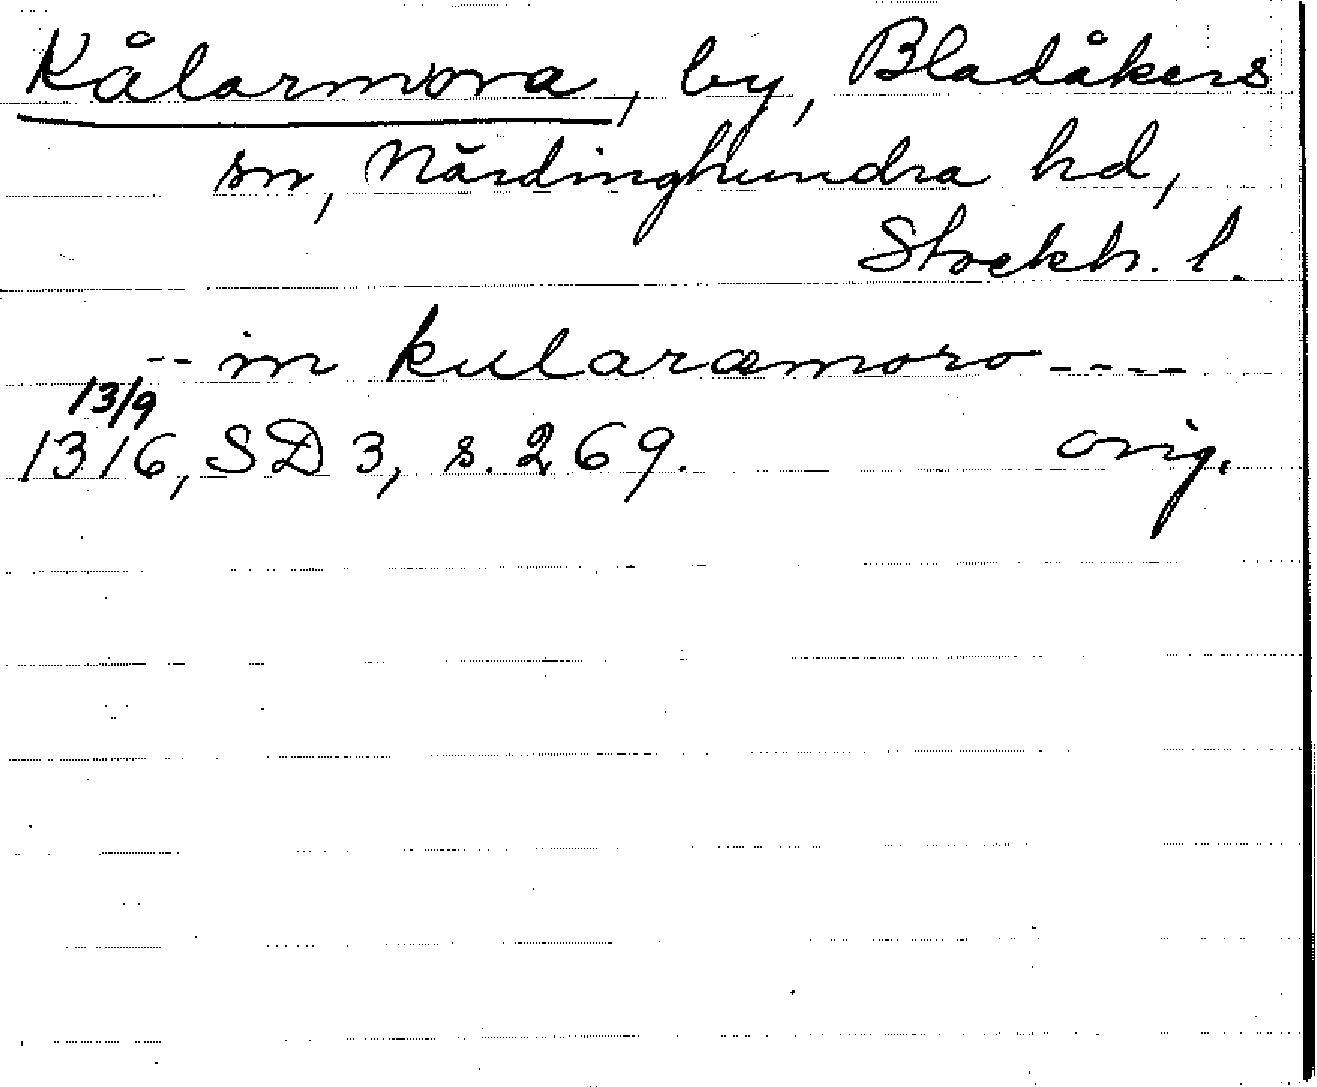 Kålarmora, by, Bladåkers
sn, Närdinghundra hd,
Stockh. l.
-- in kularæmoro ----
13/9
1316, SD 3, s. 269. orig.